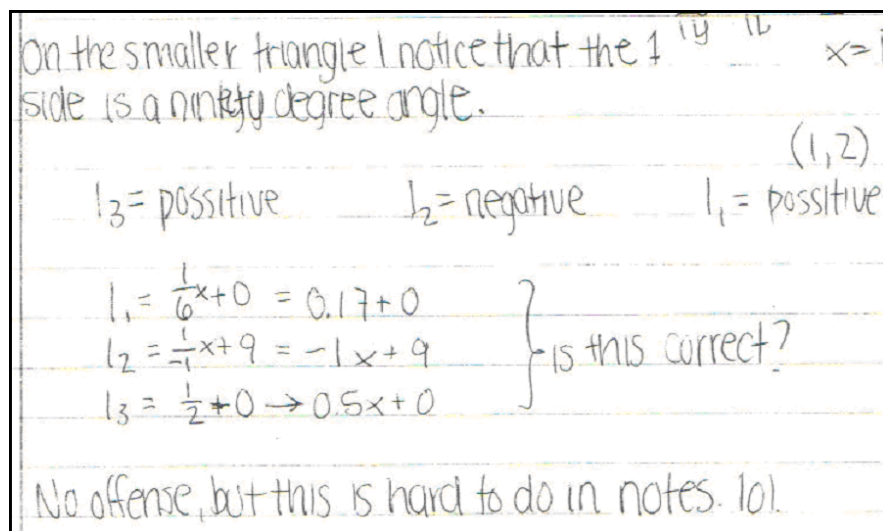 On the smaller triangle I notice that the 1
side is a ninety degree angle. x=
(1,2)
l₃ = possitive l₂ = negative l₁ = possitive
l₁ = 1/6 x + 0 = 0.17 + 0
l₂ = 1/-1 x + 9 = -1x + 9 is this correct?
l₃ = 1/2 + 0 → 0.5x + 0
No offense, but this is hard to do in notes. lol.